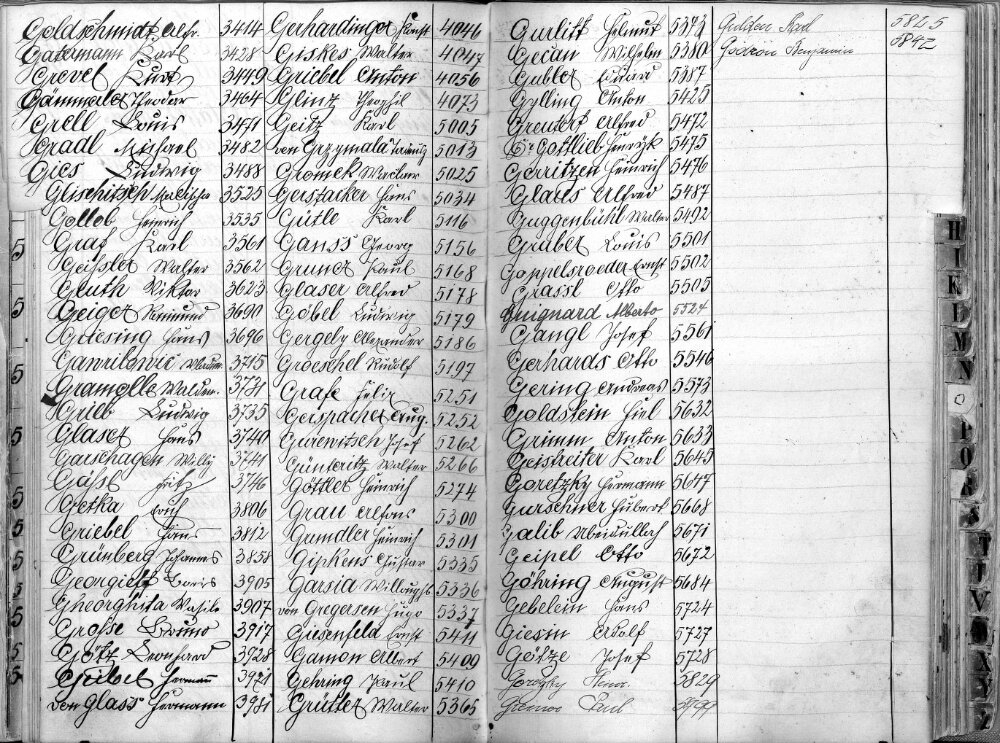 Goldschmidt Alfr. 3414
Gatermann Karl 3428
Grevel Kurt 3449
Gämmerler Theodor 3464
Grell Louis 3471
Gradl Michael 3482
Gies Ludwig 3488
Glischitsch 3525
Gollob Heinrich 3535
Graf Karl 3561
Geissler Walter 3562
Gluth Viktor 3623
Geiger Raimund 3690
Griesing Hans 3696
Gawrilowič 3715
Gramolle Waldem. 3731
Grieb Ludwig 3735
Glaser Hans 3740
Garschagen Willy 3741
Gasse Fritz 3746
Getka Erich 3806
Griebel Hans 3812
Grünberg Johannes 3858
Georgieff Boris 3905
Gheorghita Vasile 3907
Grosse Bruno 3917
Götz Leonhard 3928
Geibel Hermann 3921
von Glass Hermann 3981
Gerhardinger Konst 4046
Giskes Walter 4047
Griebel Anton 4056
Glinz Theophil 4073
Geitz Karl 5005
von Grzymala 5013
Glomek Waclaw 5025
Gerstacker Hans 5034
Gütle Karl 5116
Ganss Georg 5156
Gruner Paul 5168
Glaser Alfred 5178
Göbel Ludwig 5179
Gergely Alexander 5186
Groeschel Rudolf 5197
Grafe Felix 5251
Gerspacher Aug. 5252
Gurewitsch Josef 5262
Günteritz Walter 5266
Göttler Heinrich 5274
Grau Alfons 5300
Grundler Heinrich 5301
Gipkens Gustav 5335
Garsia Willoughs 5336
von Gregersen Hugo 5337
Giesenfeld Ernst 5411
Gamon Albert 5400
Gehring Paul 5410
Grütter Walter 5365
Gurlitt Helmut 5373
Gecan Wilhelm 5380
Gubler Eduard 5387
Gylling Anton 5425
Greuter Alfred 5472
Gottlieb Henryk 5475
Gerritzen Heinrich 5476
Glaus Alfred 5487
Guggenbühl Walter 5492
Gruber Louis 5501
Goppelsroeder Ernst 5502
Grassl Otto 5505
Guignard Alberto 5524
Gangl Josef 5561
Gerhards Otto 5546
Gering Andreas 5573
Goldstein Hiel 5632
Grimm Anton 5633
Geistreiter Karl 5645
Goretzky Hermann 5647
Gurschner Hubert 5668
Galib Ubeidulloch 5671
Geipel Otto 5672
Göhring August 5684
Gebelein Hans 5724
Giesin Adolf 5727
Götze Josef 5728
5829
Paul
Gulden Karl 5825
Godron Benjamin 5842
5
5
5
5
5
5
5
5
5
H
I
K
L
M
N
O
P
Q
R
S
T
U
V
W
X
Y
Z